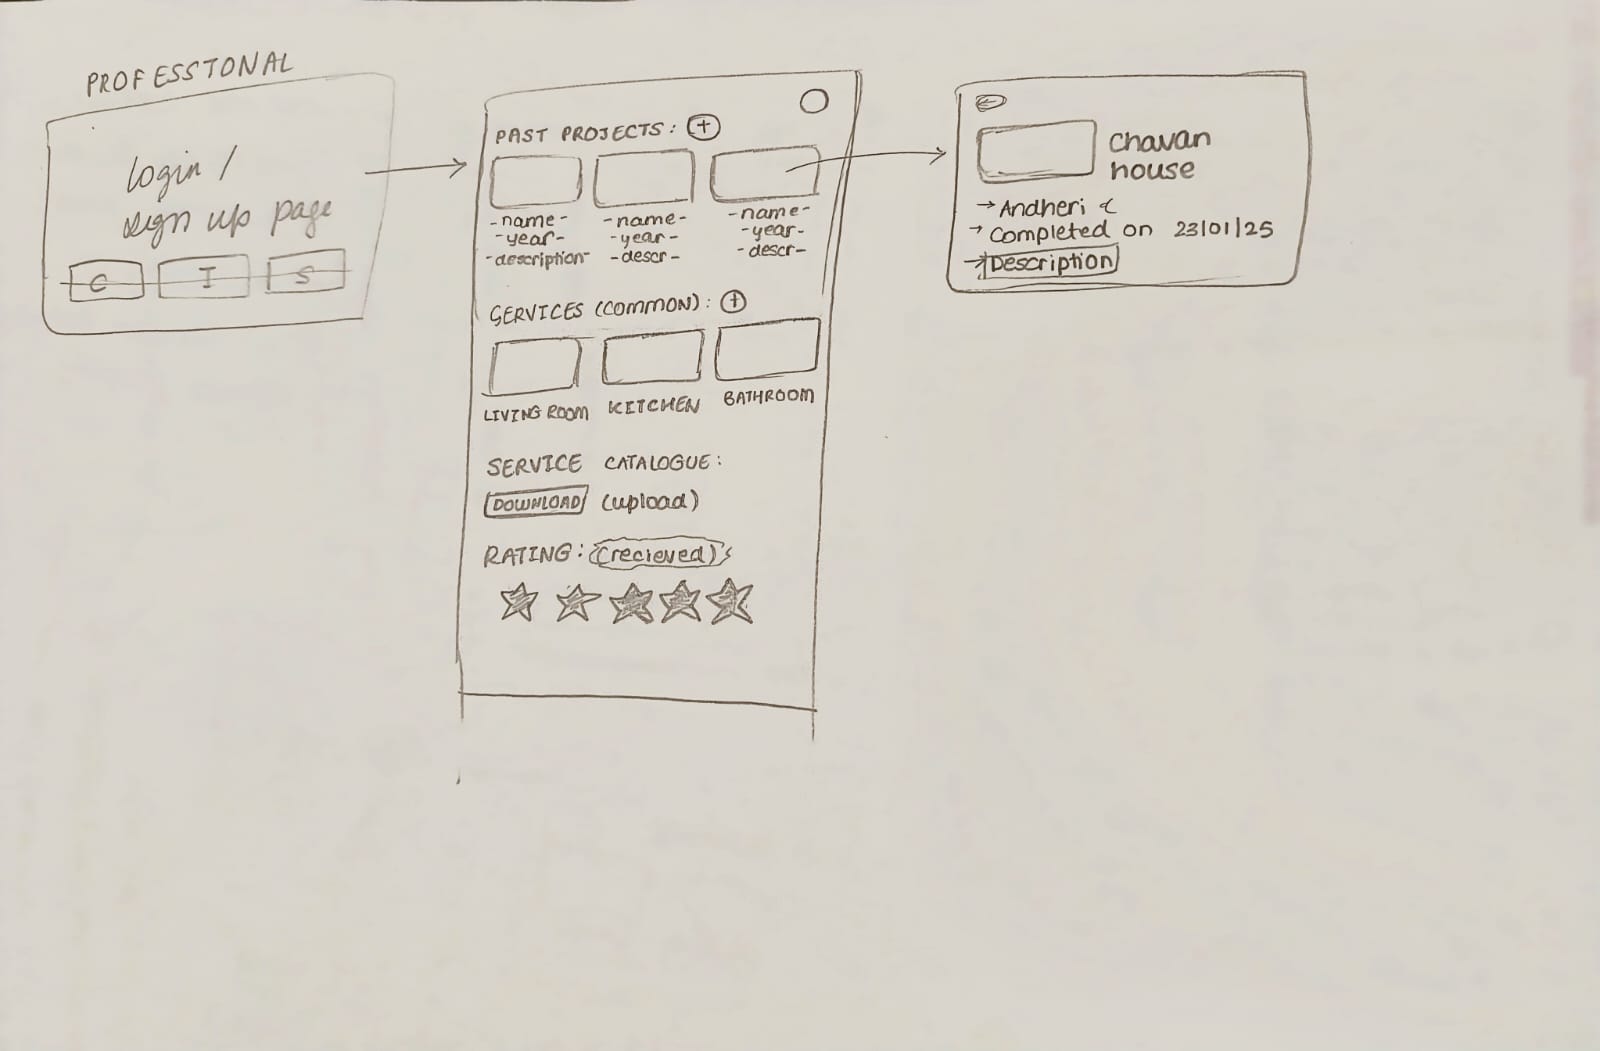 PROFESSIONAL
login /
sign up page
C I S
PAST PROJECTS: +
-name- -name- -name-
-year- -year- -year-
-description- -descr- -descr-
SERVICES (COMMON): +
LIVING ROOM KITCHEN BATHROOM
SERVICE CATALOGUE:
DOWNLOAD (upload)
RATING: (recieved)
←
Chavan
house
→ Andheri
→ Completed on 23/01/25
→ Description